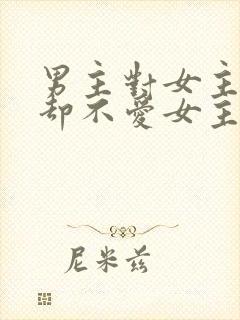 男主對女主
却不愛女主
尼米兹